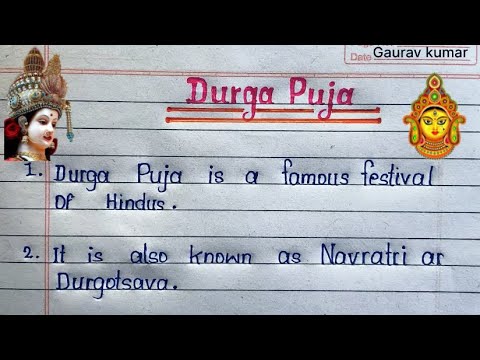 Gaurav kumar
Date
Durga Puja
1. Durga Puja is a famous festival
Of Hindus.
2. It is also known as Navratri ar
Durgotsava.